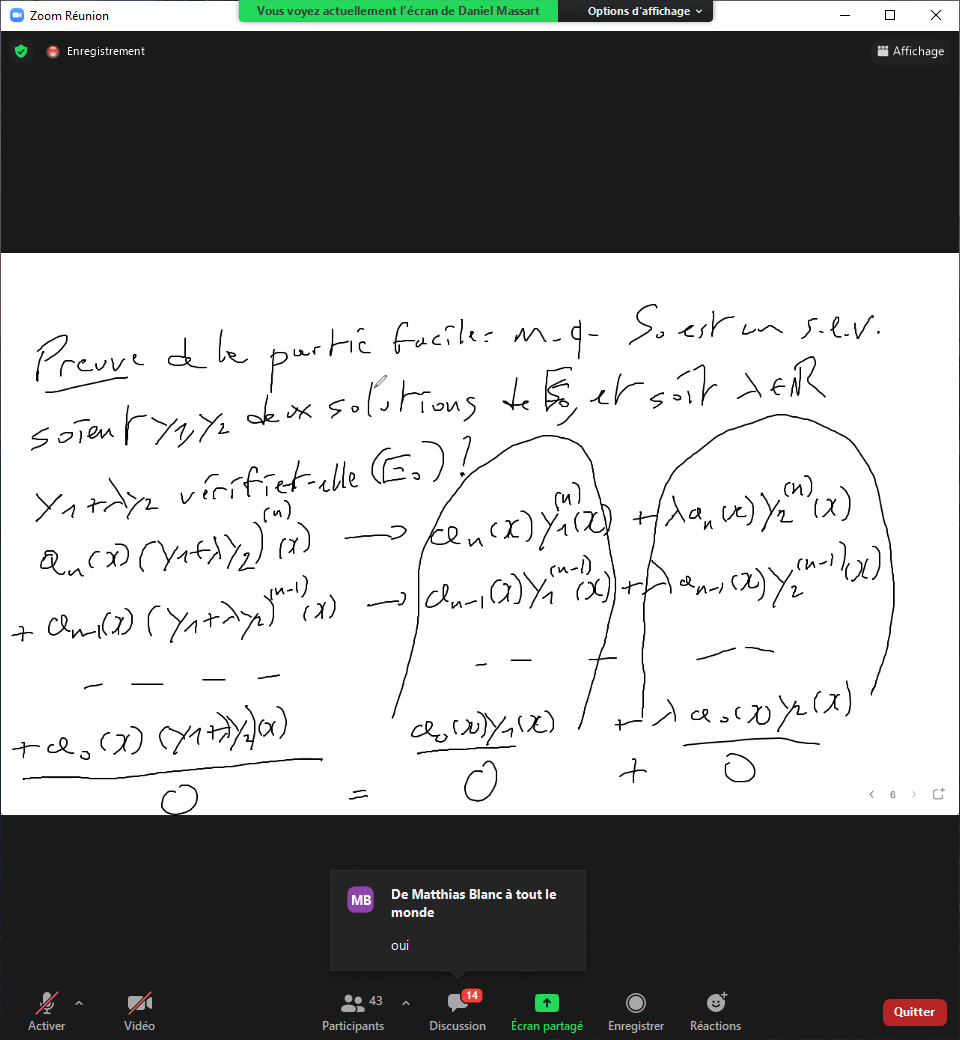 Zoom Réunion
Vous voyez actuellement l'écran de Daniel Massart
Options d'affichage
Enregistrement
Affichage
Preuve de la partie facile : m-q- S₀ est un s.e.v.
soient y₁, y₂ deux solutions de E₀, et soit λ∈ℝ
y₁+λy₂ vérifiet-elle (E₀) ?
aₙ(x)(y₁+λy₂)⁽ⁿ⁾(x) → aₙ(x)y₁⁽ⁿ⁾(x) + λaₙ(x)y₂⁽ⁿ⁾(x)
+ aₙ₋₁(x)(y₁+λy₂)⁽ⁿ⁻¹⁾(x) → aₙ₋₁(x)y₁⁽ⁿ⁻¹⁾(x) + λaₙ₋₁(x)y₂⁽ⁿ⁻¹⁾(x)
- - - - - - + - -
+a₀(x)(y₁+λy₂)(x) a₀(x)y₁(x) + λa₀(x)y₂(x)
0 = 0 + 0
6
MB
De Matthias Blanc à tout le
monde
oui
43
14
Activer
Vidéo
Participants
Discussion
Écran partagé
Enregistrer
Réactions
Quitter